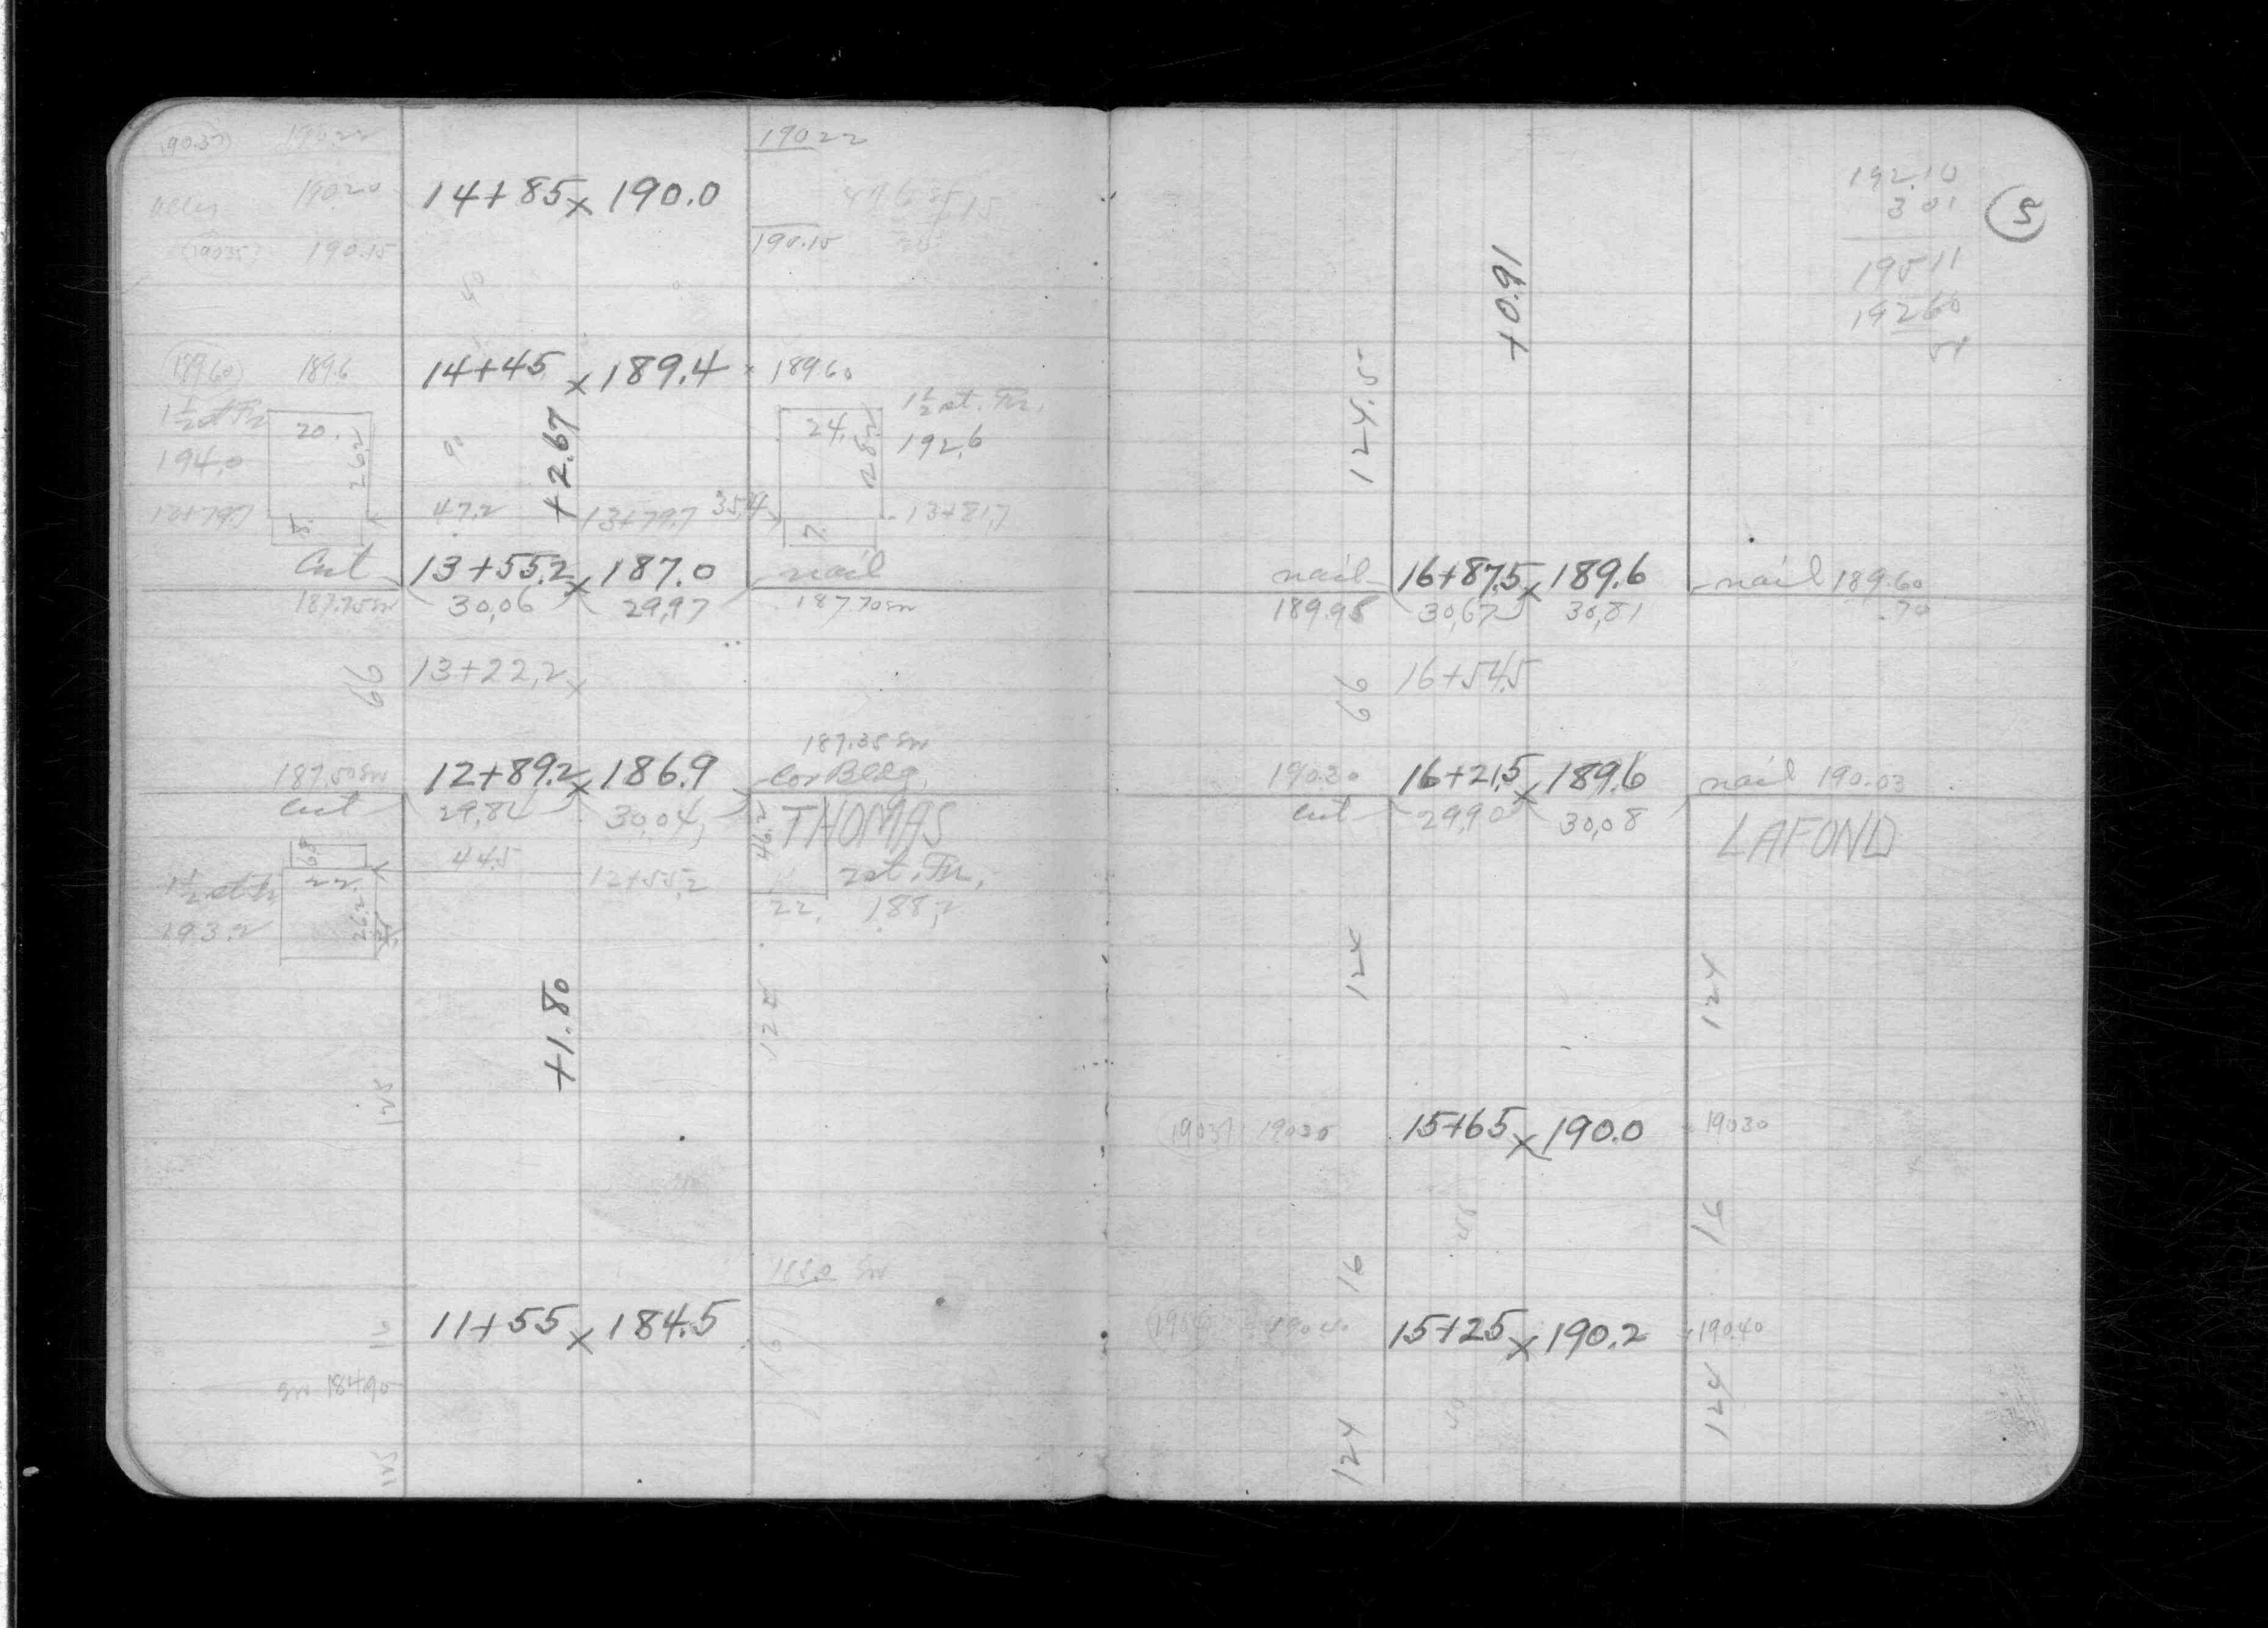 190.37 190.22 190.22
14+85 x 190.0
190.20
alley
190.35 190.15 190.15
189.60 189.6 14+45 x 189.4 189.60
1½ st Fr 20. 26.2 +2.67 24. 28.2 1½ st. Fr.
194.0 192.6
47.2 13+79.7 35.4 13+81.7
8. 7.
Cut 13+55.2 x 187.0 nail
187.75 sw 30.06 29.97 187.70 sw
66 13+22.2 x
187.35 sw
187.50 sw 12+89.2 x 186.9 Cor Bldg.
cut 29.84 30.04 46.2 THOMAS
6.8 44.5 12+55.2 2 st. Fr.
1½ st Fr 22. 26.2 22. 188.2
193.2
+1.80 125
125
11+55 x 184.5
sw 184.90
125
192.10
3 01
5
195 11
192 60
51
+0.91
124.5
nail 16+87.5 x 189.6 nail 189.60
189.98 30.67 30.81 .70
66 16+54.5
190.30 16+21.5 x 189.6 nail 190.03
cut 29.90 30.08 LAFOND
124 124
190.37 190 30 15+65 x 190.0 190 30
16 16
15+25 x 190.2 190.40
124 124